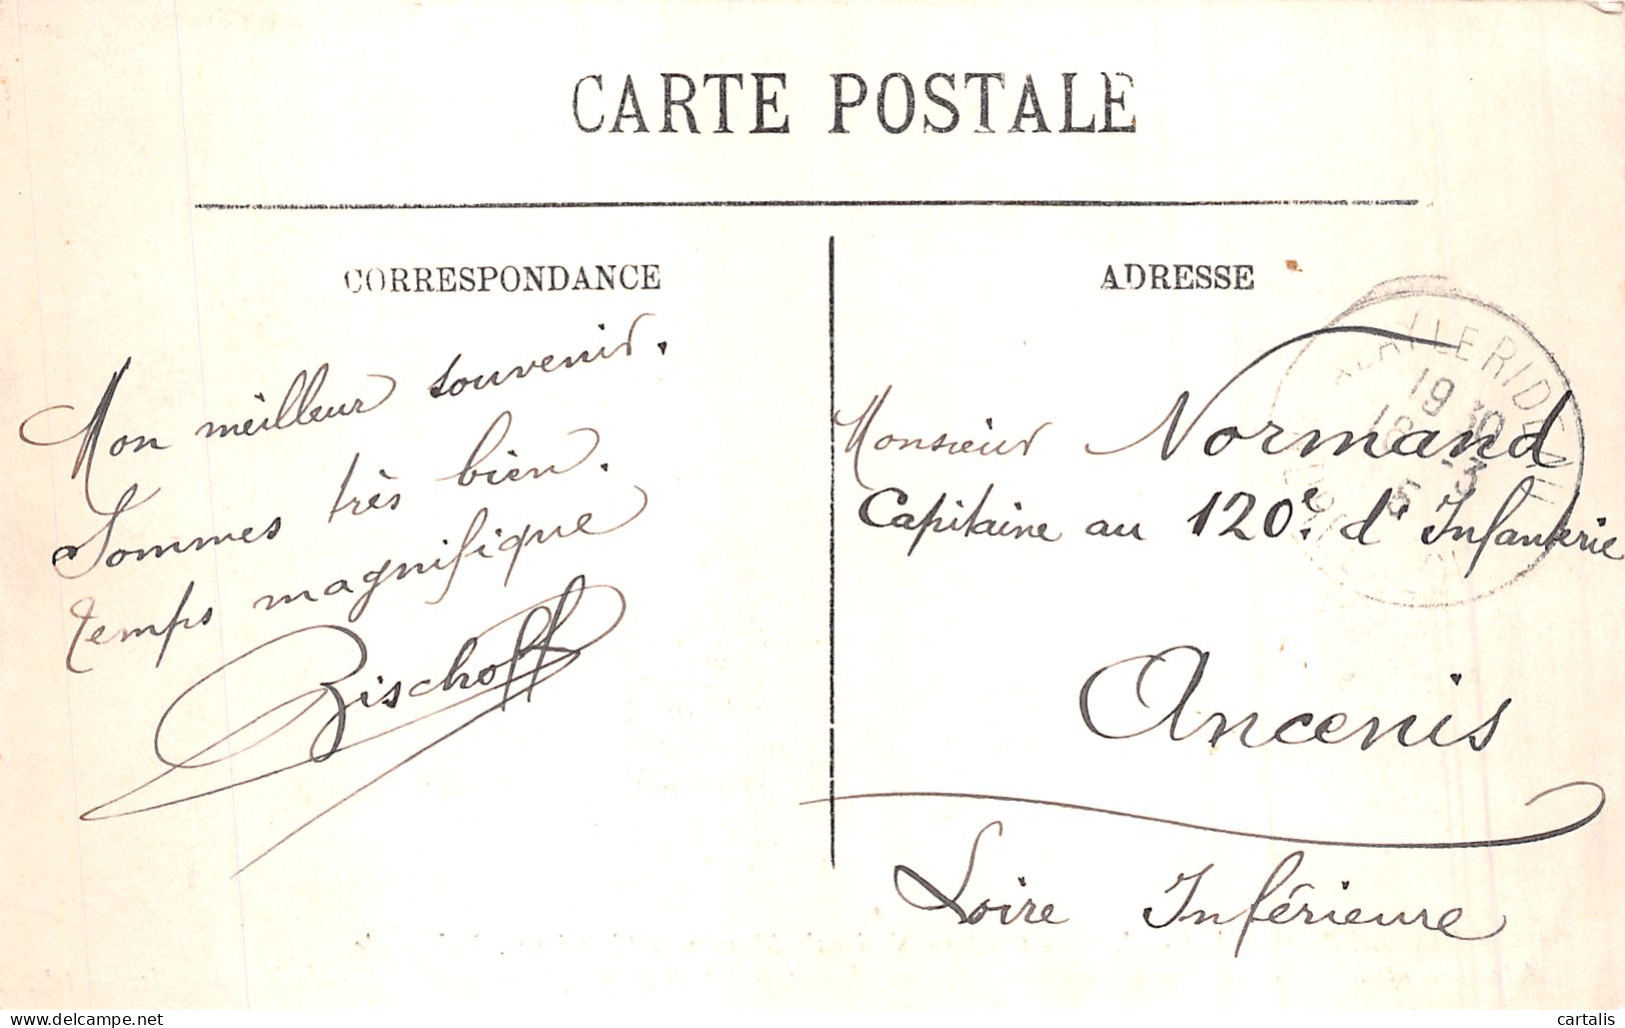 CARTE POSTALE
CORRESPONDANCE
Mon meilleur souvenir.
Sommes très bien.
temps magnifique
Bischoff
ADRESSE
19 30
18 -3
15
Monsieur Normand
Capitaine au 120e. d'Infanterie
Ancenis
Loire Inférieure
www.delcampe.net
cartalis